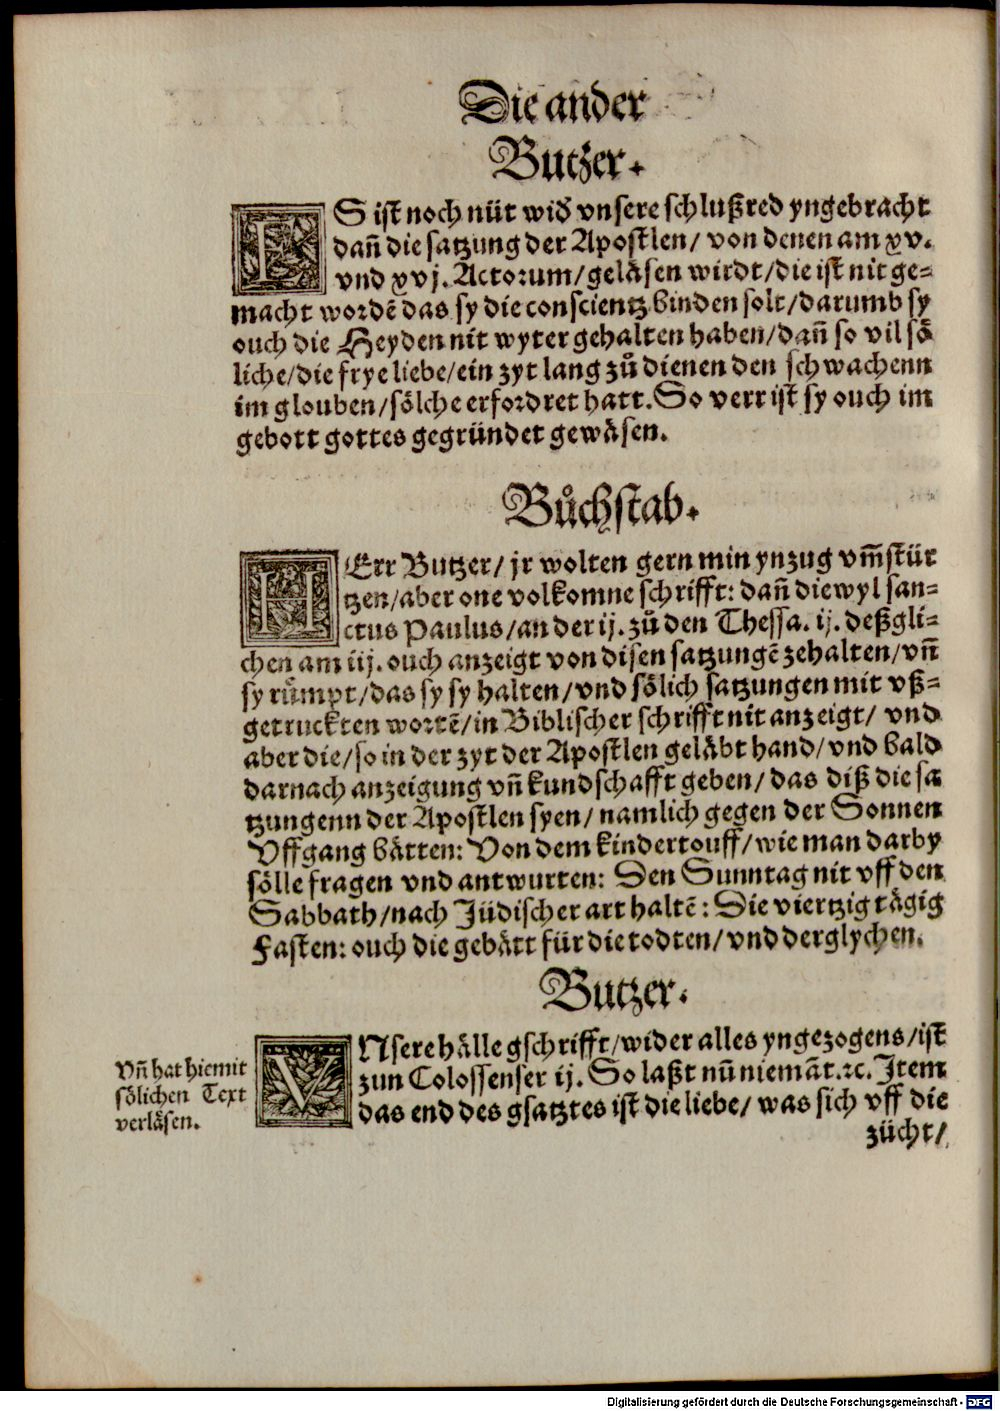 Die ander
Butzer.
ES ist noch nüt wid̕ vnsere schlußred yngebracht
dañ die satzung der Apostlen/ von denen am xv.
vnd xvj. Actorum/geläsen wirdt/die ist nit ge-
macht wordē das sy die conscientz binden solt/darumb sy
ouch die Heyden nit wyter gehalten haben/dañ so vil sö
liche/die frye liebe/ein zyt lang zů dienen den schwachenn
im glouben/sölche erfordret hatt. So verr ist sy ouch im
gebott gottes gegründet gewäsen.
Bůchstab.
HErr Butzer/ jr wolten gern min ynzug vm̄stür
tzen/aber one volkomne schrifft: dañ diewyl san-
ctus Paulus/an der ij. zů den Thessa. ij. deßgli-
chen am iij. ouch anzeigt von disen satzungē zehalten/vñ
sy rümpt/das sy sy halten/vnd sölich satzungen mit vß-
getruckten wortē/in Biblischer schrifft nit anzeigt/ vnd
aber die/so in der zyt der Apostlen geläbt hand/vnd bald
darnach anzeigung vñ kundschafft geben/ das diß die sa
tzungenn der Apostlen syen/ namlich gegen der Sonnen
Vffgang bätten: Von dem kindertouff/wie man darby
sölle fragen vnd antwurten: Den Sunntag nit vff den
Sabbath/nach Jüdischer art haltē: Die viertzig tägig
Fasten: ouch die gebätt für die todten/vnd derglychen.
Butzer.
VNsere hälle gschrifft/wider alles yngezogens/ist
zun Colossenser ij. So laßt nū niemāt.ꝛc. Item
das end des gsatztes ist die liebe/ was sich vff die
zücht/
Vñ hat hiemit
sölichen Text
verläsen.
Digitalisierung gefördert durch die Deutsche Forschungsgemeinschaft - DFG